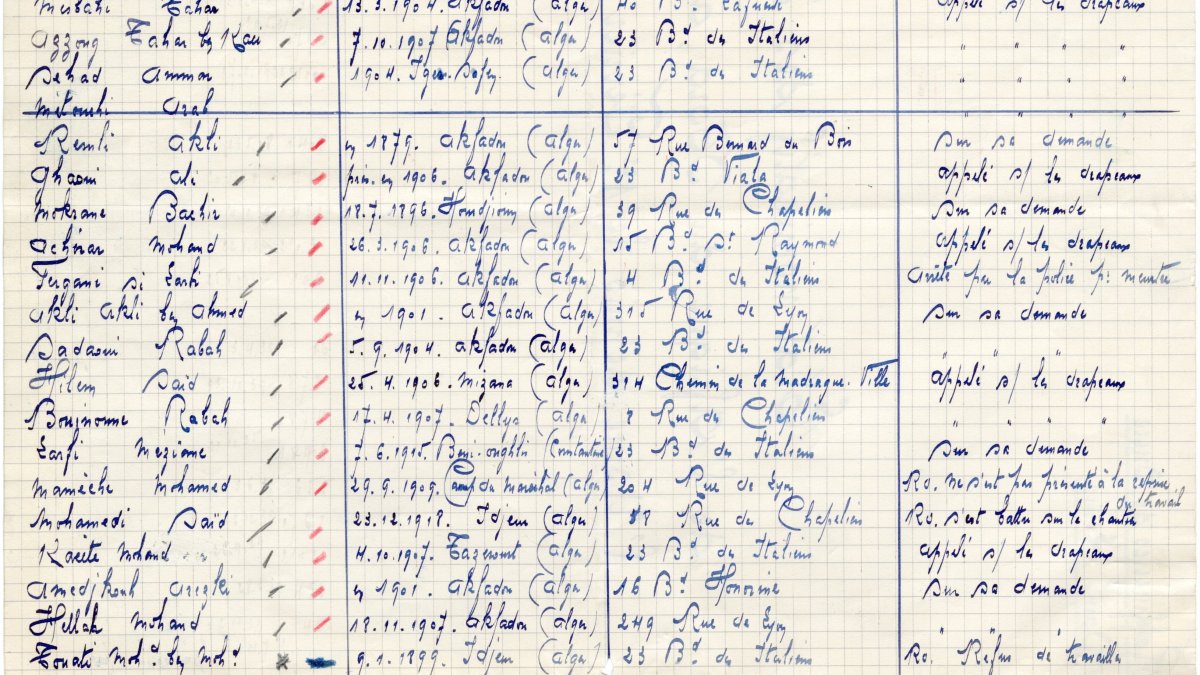 Mesbahi Tahar 13.3.1904. Akfadou (Alger) 40 Bd. appelé s/ les drapeaux
Azzoug Tahar ben Kaci 7.10.1907 Akfadou (Alger) 23 Bd. des Italiens " " "
Dehad Ammar 1904. (Alger) 23 Bd. des Italiens " " " "
Mitouchi Arab " " "
Remli Akli en 1879. Akfadou (Alger) 57 Rue Bernard du Bois sur sa demande
Ghaoui Ali prés. en 1906. Akfadou (Alger) 23 Bd. Viala appelé s/ les drapeaux
Mokrane Bachir 18.7.1896. (Alger) 39 Rue des Chapeliers sur sa demande
Achirar Mohand 26.3.1906. Akfadou (Alger) 15 Bd. St. Raymond appelé s/ les drapeaux
Tergani si Larbi 11.11.1906. Akfadou (Alger) 4 Bd. des Italiens arrêté par la police pr. meurtre
Akli Akli ben Ahmed en 1901. Akfadou (Alger) 315 Rue de Lyon sur sa demande
Dadaoui Rabah 5.9.1904. Akfadou (Alger) 23 Bd. des Italiens " " " "
Hilem Saïd 25.4.1906. Mizana (Alger) 314 Chemin de la Madrague. Ville appelé s/ les drapeaux
Boujnoune Rabah 17.4.1907. Dellys (Alger) 8 Rue des Chapeliers " " " "
Larfi Meziane 7.6.1915. Beni-oughlis (Constantine) 23 Bd. des Italiens sur sa demande
Mameche Mohamed 29.9.1909. Camp du Maréchal (Alger) 204 Rue de Lyon Ro. ne s'est pas présenté à la reprise du travail
Mohamedi Saïd 23.12.1918. Idjeur (Alger) 58 Rue des Chapeliers Ro. s'est battu sur le chantier
Kacite Mohand 4.10.1907. Tazerout (Alger) 23 Bd. des Italiens appelé s/ les drapeaux
Amedjkouh Arezki en 1901. Akfadou (Alger) 16 Bd. Honorine sur sa demande
Hellak Mohand 18.11.1907. Akfadou (Alger) 249 Rue de Lyon " " "
Touati Mohd. ben Mohd. 9.1.1899. Idjeur (Alger) 23 Bd. des Italiens Ro. Refus de travailler